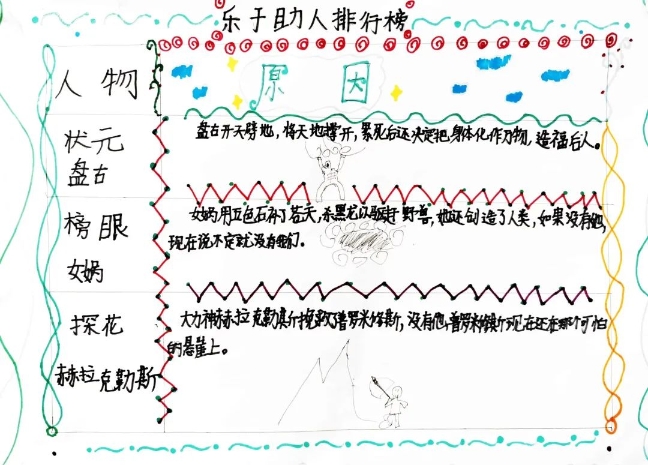 乐于助人排行榜
人物
原因
状元
盘古
盘古开天劈地，将天地撑开，累死后还决定把身体化作万物，造福后人。
榜眼
女娲
女娲用五色石补了苍天，杀黑龙以驱走野兽，她还创造了人类，如果没有她，
现在说不定就没有我们。
探花
赫拉克勒斯
大力神赫拉克勒斯拯救了普罗米修斯，没有他，普罗米修斯现在还在那个可怕
的悬崖上。